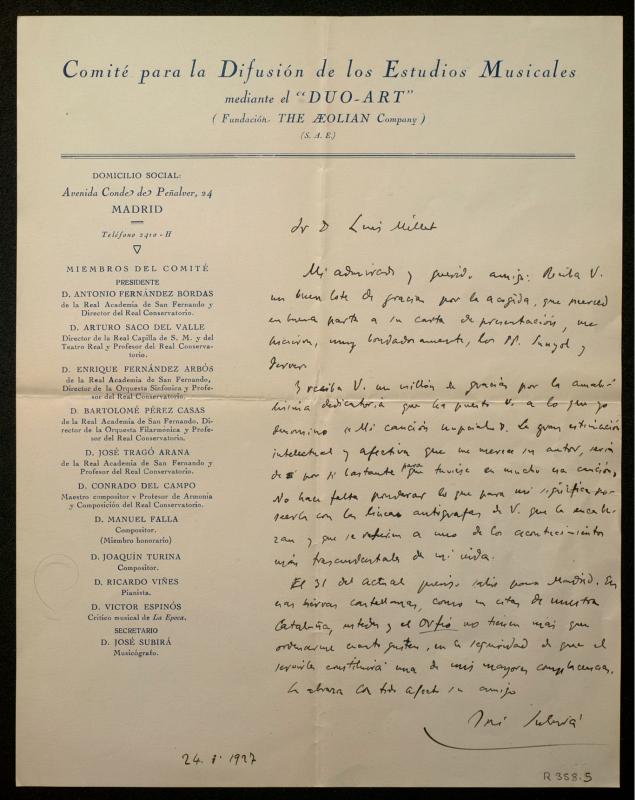 Comité para la Difusión de los Estudios Musicales
mediante el "DUO-ART"
( Fundación. THE ÆOLIAN Company )
(S. A. E.)
DOMICILIO SOCIAL:
Avenida Conde de Peñalver, 24
MADRID
Teléfono 2410 - H
MIEMBROS DEL COMITÉ
PRESIDENTE
D. ANTONIO FERNÁNDEZ BORDAS
de la Real Academia de San Fernando y
Director del Real Conservatorio.
D. ARTURO SACO DEL VALLE
Director de la Real Capilla de S. M. y del
Teatro Real y Profesor del Real Conserva-
torio.
D. ENRIQUE FERNÁNDEZ ARBÓS
de la Real Academia de San Fernando,
Director de la Orquesta Sinfónica y Profe-
sor del Real Conservatorio.
D. BARTOLOMÉ PÉREZ CASAS
de la Real Academia de San Fernando, Di-
rector de la Orquesta Filarmónica y Profe-
sor del Real Conservatorio.
D. JOSÉ TRAGÓ ARANA
de la Real Academia de San Fernando y
Profesor del Real Conservatorio.
D. CONRADO DEL CAMPO
Maestro compositor y Profesor de Armonia
y Composición del Real Conservatorio.
D. MANUEL FALLA
Compositor.
(Miembro honorario)
D. JOAQUÍN TURINA
Compositor.
D. RICARDO VIÑES
Pianista.
D. VICTOR ESPINÓS
Crítico musical de La Epoca.
SECRETARIO
D. JOSÉ SUBIRÁ
Musicógrafo.
Sr D Luis Millet
Mi admirado y querido amigo: Reciba V.
un buen lote de gracias por la acogida, que merced
en buena parte a su carta de presentación, me
hicieron, muy bondadosamente, los PP. Sunyol y
Y reciba V. un millón de gracias por la amabi-
lisima dedicatoria que ha puesto V. a lo que yo
denomino « Mi canción ». La gran estimación
intelectual y afectiva que me merece su autor, sería
de por si bastante para que tuviese en mucho esa canción.
No hace falta ponderar lo que para mi significa po-
seerla con las líneas autógrafas de V. que la encabe-
zan y que se refieren a uno de los acontecimientos
más trascendentales de mi vida.
El 31 del actual pienso salir para Madrid. En
esas tierras castellanas, como en estas de nuestra
Cataluña, ustedes y el Orfeó no tienen más que
ordenarme cuanto gusten, en la seguridad de que el
servirles constituirá una de mis mayores complacencias.
Le abraza con todo afecto su amigo
José Subirá
24. 8' 1927
R 358.5